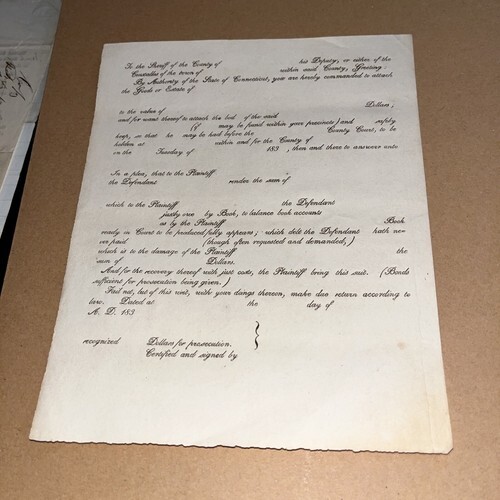 To the Sheriff of the County of his Deputy, or either of the
Constables of the town of within said County, Greeting:
By Authority of the State of Connecticut, you are hereby commanded to attach
the Goods or Estate of
to the value of Dollars;
and for want thereof to attach the bod of the said
( if may be found within your precincts) and safely
keep, so that he may be had before the County Court, to be
holden at within and for the County of
on the Tuesday of 183 , then and there to answer unto
In a plea, that to the Plaintiff
the Defendant render the sum of
which to the Plaintiff the Defendant
justly owe by Book, to balance book accounts
as by the Plaintiff Book
ready in Court to be produced fully appears; which debt the Defendant hath ne-
ver paid (though often requested and demanded,)
which is to the damage of the Plaintiff the
sum of Dollars.
And for the recovery thereof with just costs, the Plaintiff bring this suit. (Bonds
sufficient for prosecution being given.)
Fail not, but of this writ, with your doings thereon, make due return according to
law. Dated at the day of
A. D. 183
recognized Dollars for prosecution.
Certified and signed by